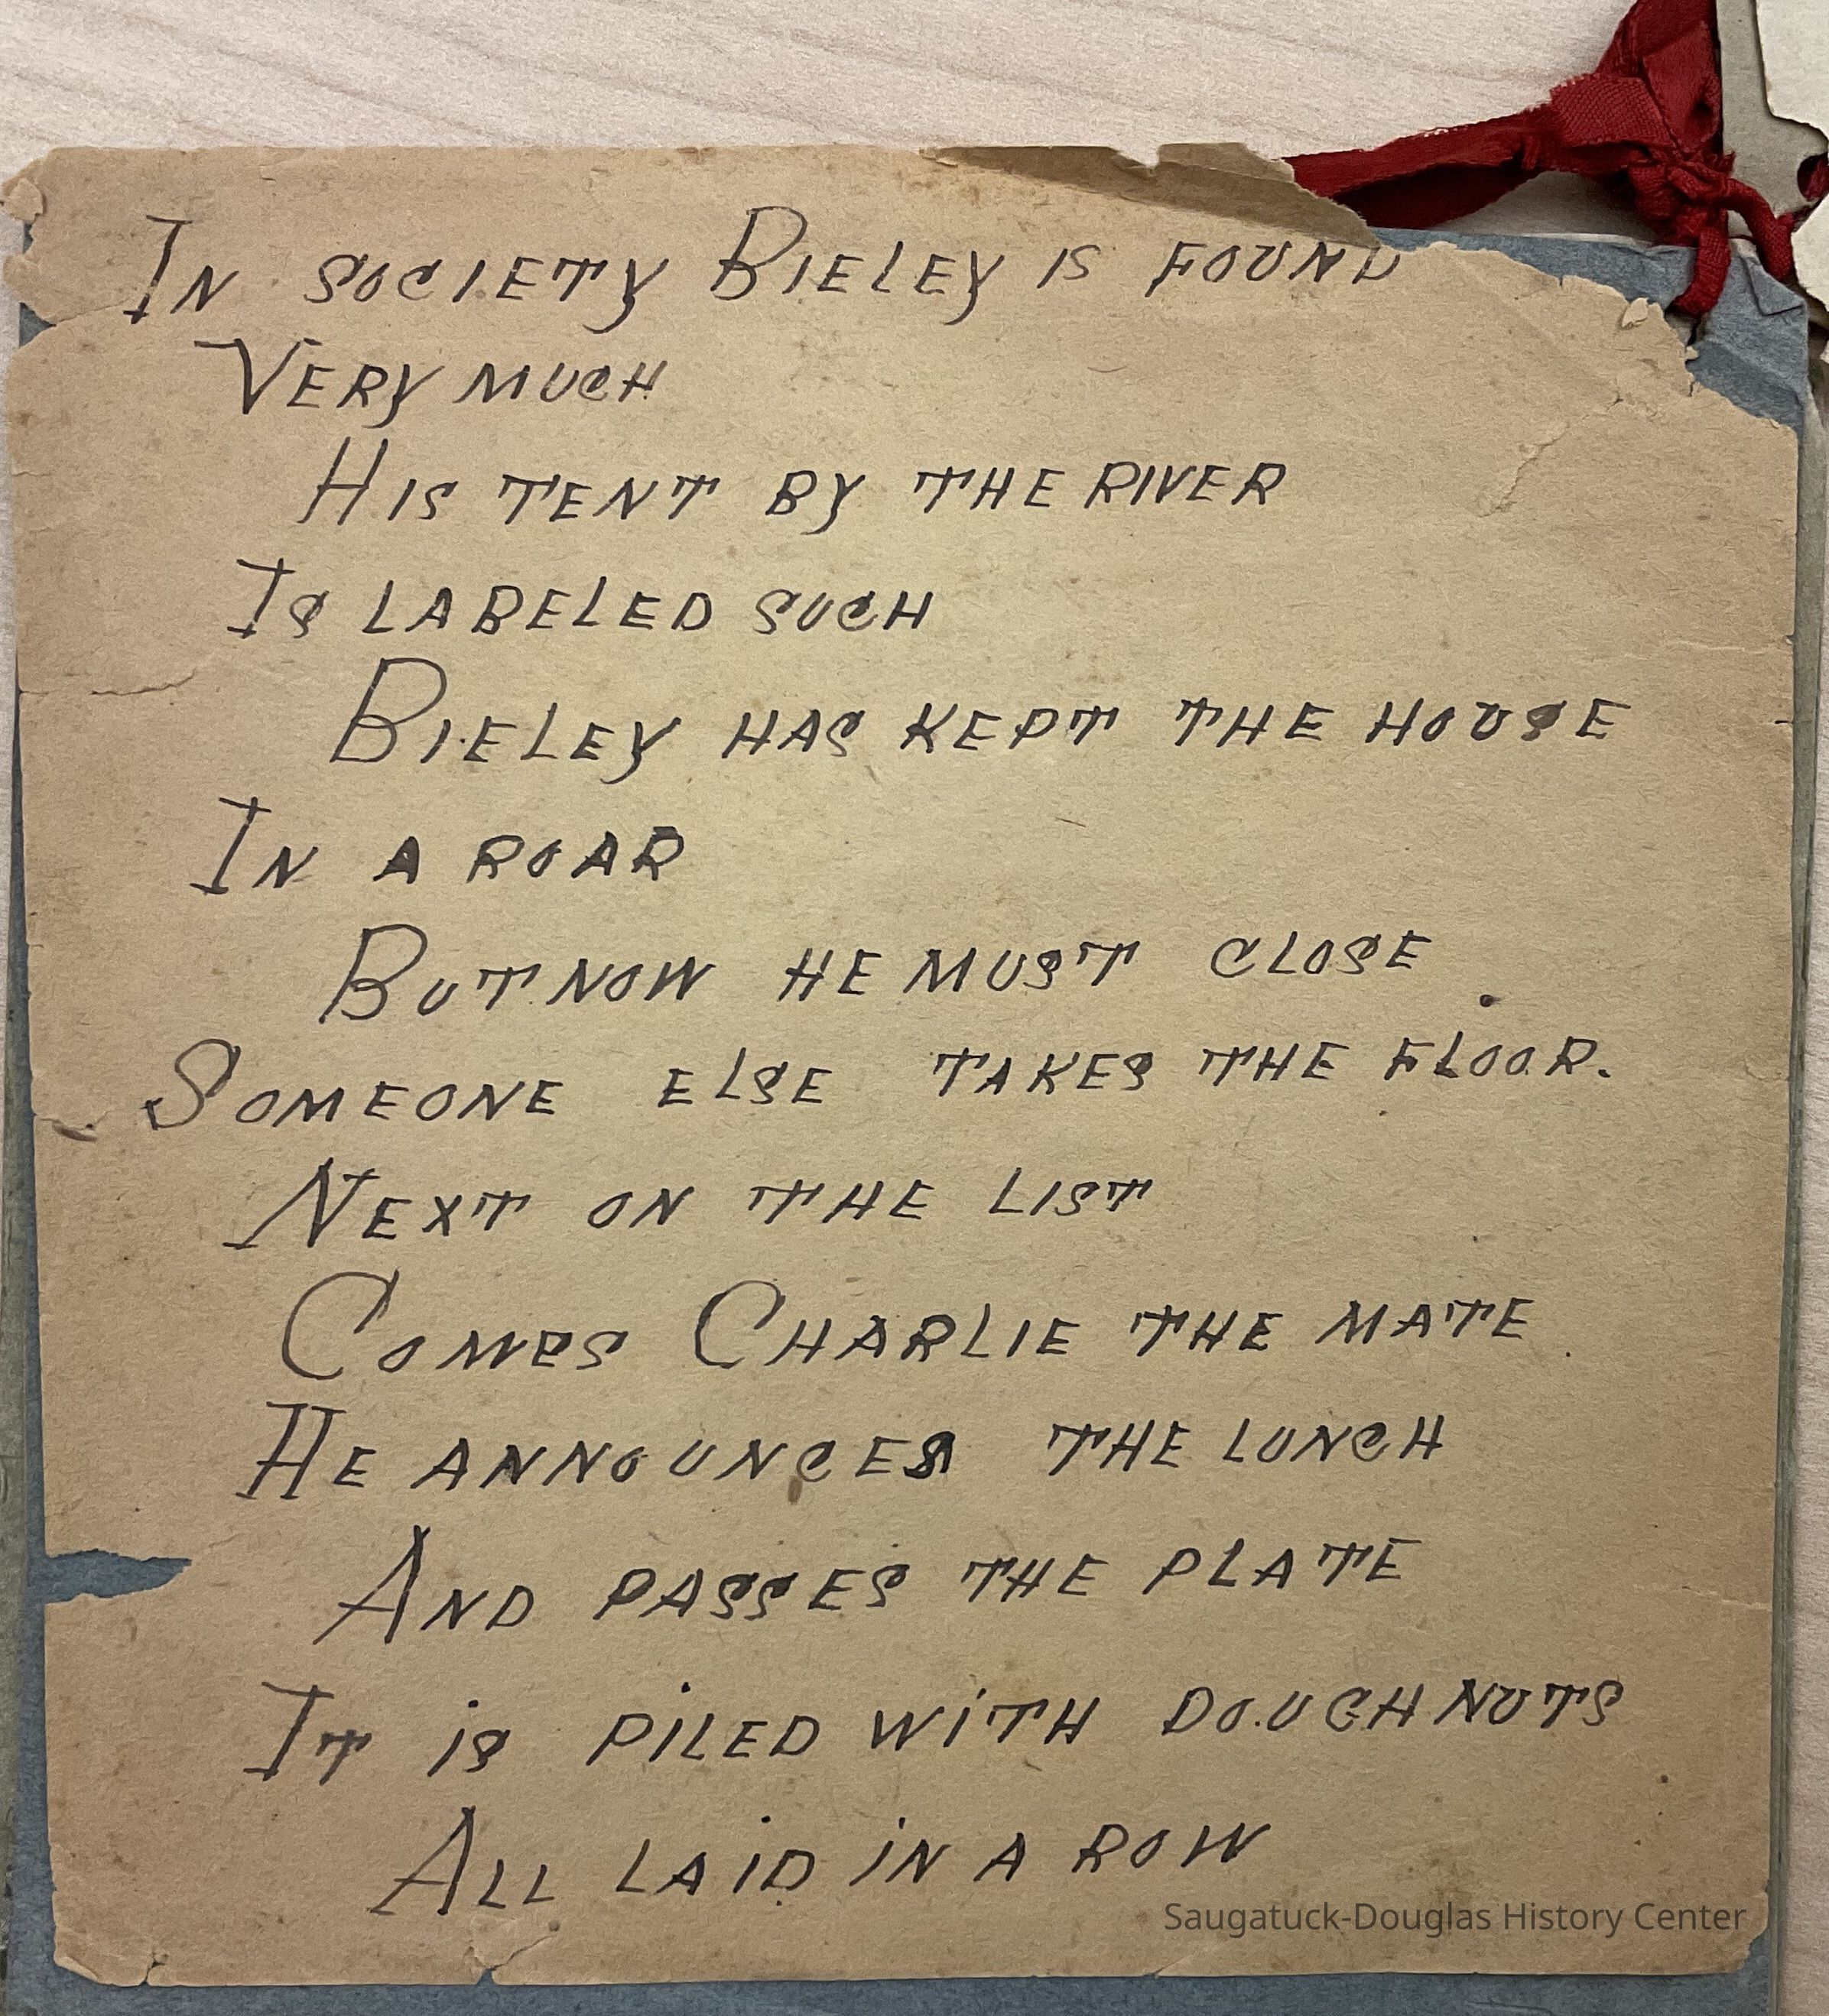 In society Bieley is found
Very much
His tent by the river
Is labeled such
Bieley has kept the house
In a roar
But now he must close
Someone else takes the floor.
Next on the list
Comes Charlie the mate
He announces the lunch
And passes the plate
It is piled with doughnuts
All laid in a row
Saugatuck-Douglas History Center